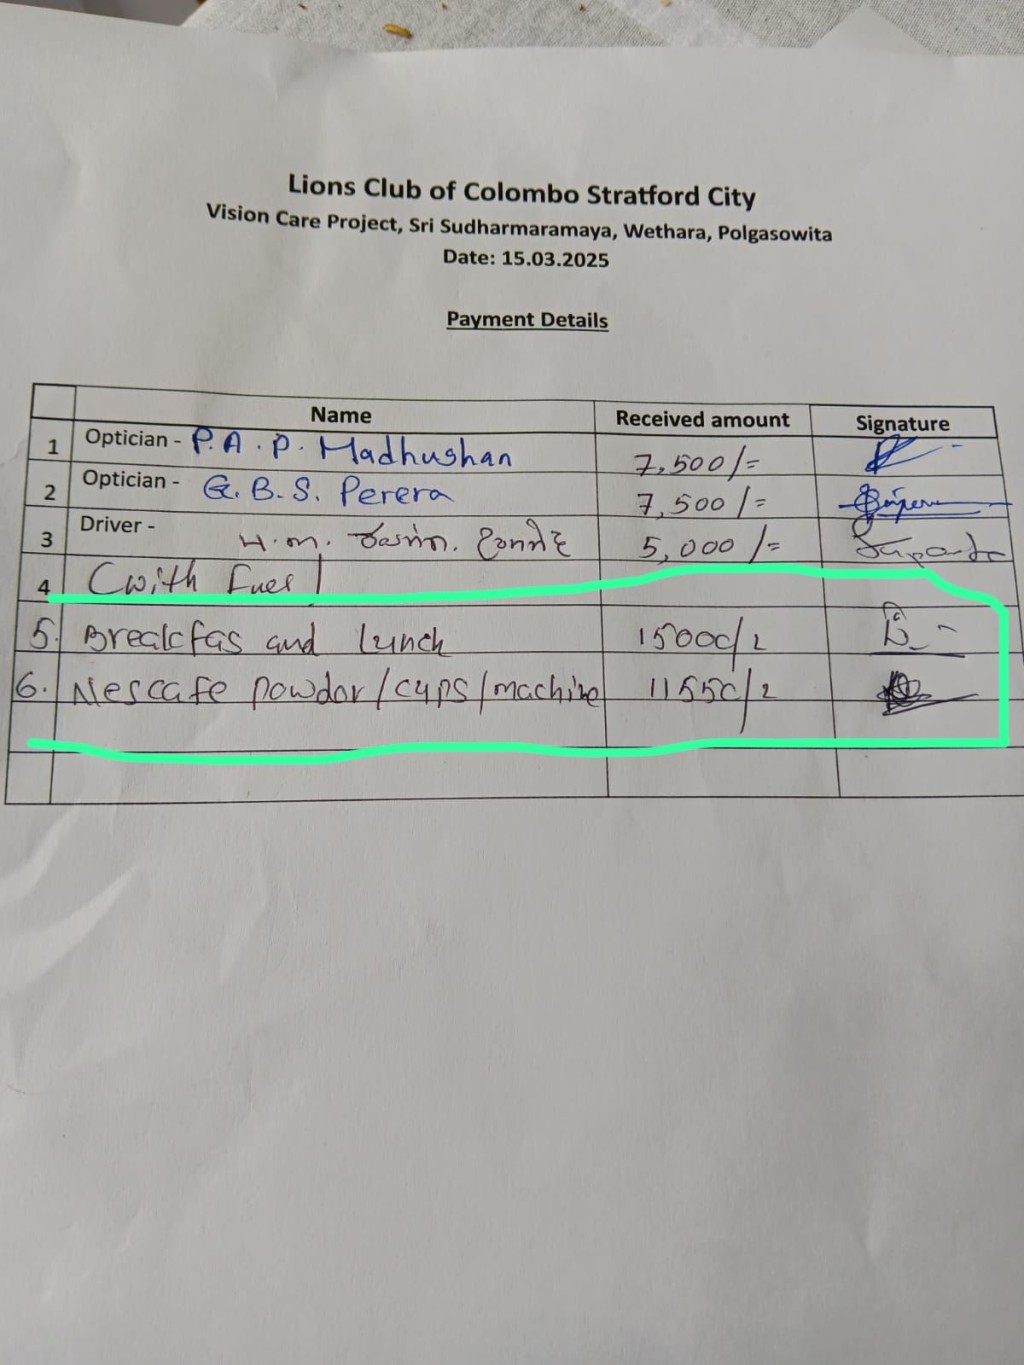 Lions Club of Colombo Stratford City
Vision Care Project, Sri Sudharmaramaya, Wethara, Polgasowita
Date: 15.03.2025
Payment Details
Name Received amount Signature
1 Optician - P.A.P. Madhushan 7,500/=
2 Optician - G.B.S. Perera 7,500/=
3 Driver - 5,000/=
4 (with Fuel)
5. Breakfas and lunch 15000/=
6. Nescafe powdor/cups/machine 11550/=